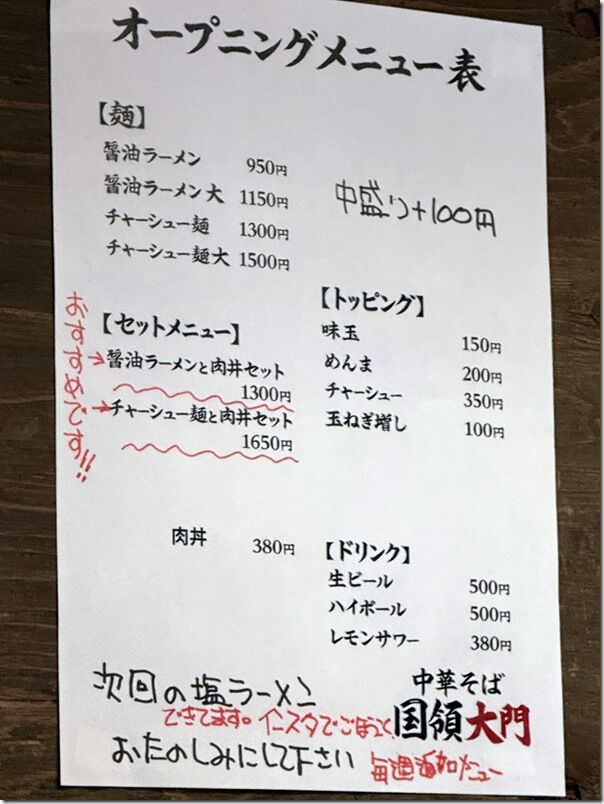 オープニングメニュー表
【麺】
醤油ラーメン 950円
醤油ラーメン大 1150円
チャーシュー麺 1300円
チャーシュー麺大 1500円
中盛り+100円
【セットメニュー】
醤油ラーメンと肉丼セット
1300円
チャーシュー麺と肉丼セット
1650円
おすすめです!!
肉丼 380円
【トッピング】
味玉 150円
めんま 200円
チャーシュー 350円
玉ねぎ増し 100円
【ドリンク】
生ビール 500円
ハイボール 500円
レモンサワー 380円
次回の塩ラーメン
できてます。インスタでごほうこく
おたのしみにして下さい
毎週追加メニュー
中華そば
国領大門